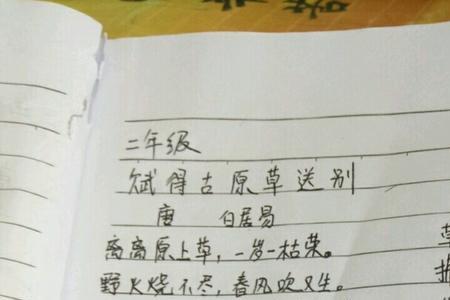 二年级
赋得古原草送别
唐 白居易
离离原上草,一岁一枯荣。
野火烧不尽,春风吹又生。